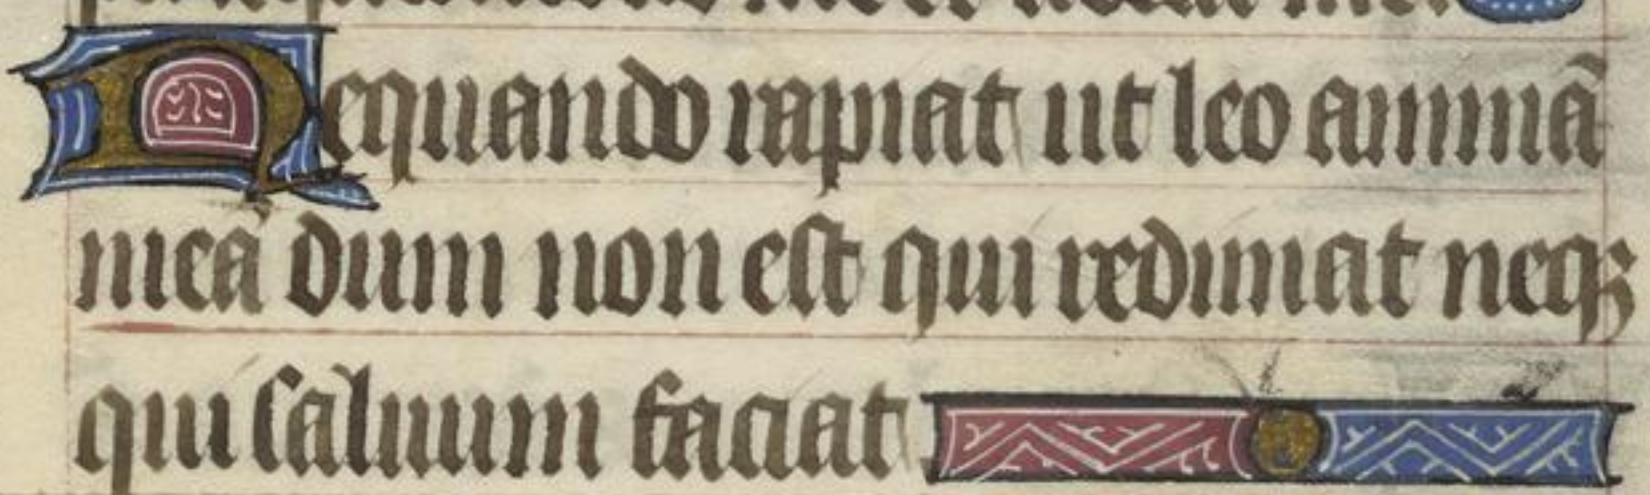 Nequando rapiat ut leo animã
mea dum non est qui redimat neqꝫ
qui saluum faciat